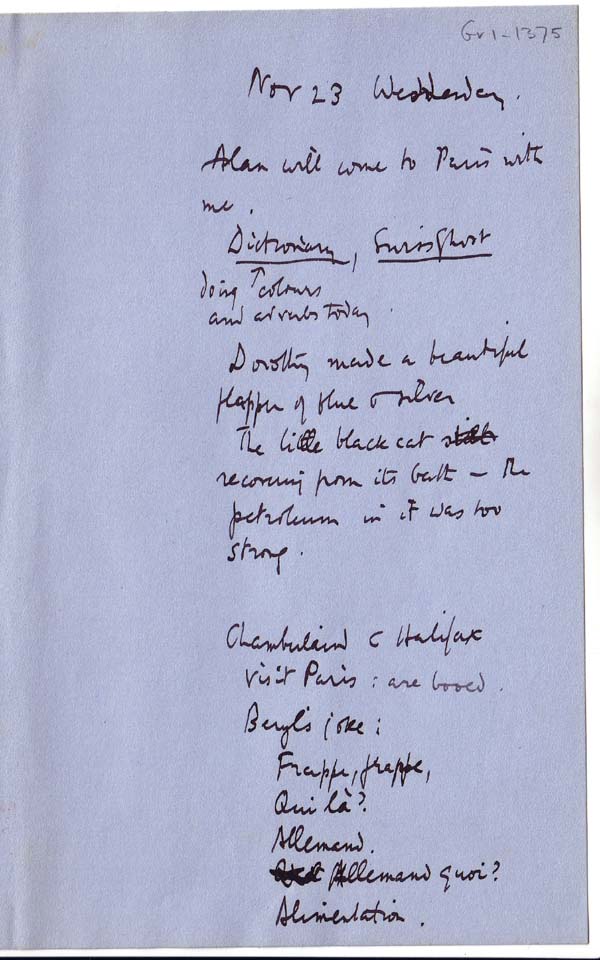 Gv1-1375
Nov 23 Wednesday.
Alan will come to Paris with
me.
Dictionary, Swiss Ghost
doing ↑ colours
and adverbs today.
Dorothy made a beautiful
flapper of blue & silver
The little black cat still
recovering from its bath – the
petroleum in it was too
strong.
Chamberlain & Halifax
visit Paris: are booed.
Beryl's joke:
Frappe, frappe,
Qui là?
Allemand.
Allemand quoi?
Alimentation.